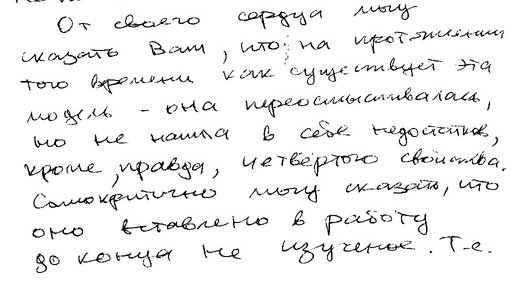 От своего сердца могу
сказать Вам, что: на протяжении
того времени как существует эта
модель - она переосмысливалась,
но не нашла в себе недостатков,
кроме, правда, четвёртого свойства.
Самокритично могу сказать, что
оно вставлено в работу
до конца не изученое. Т.е.